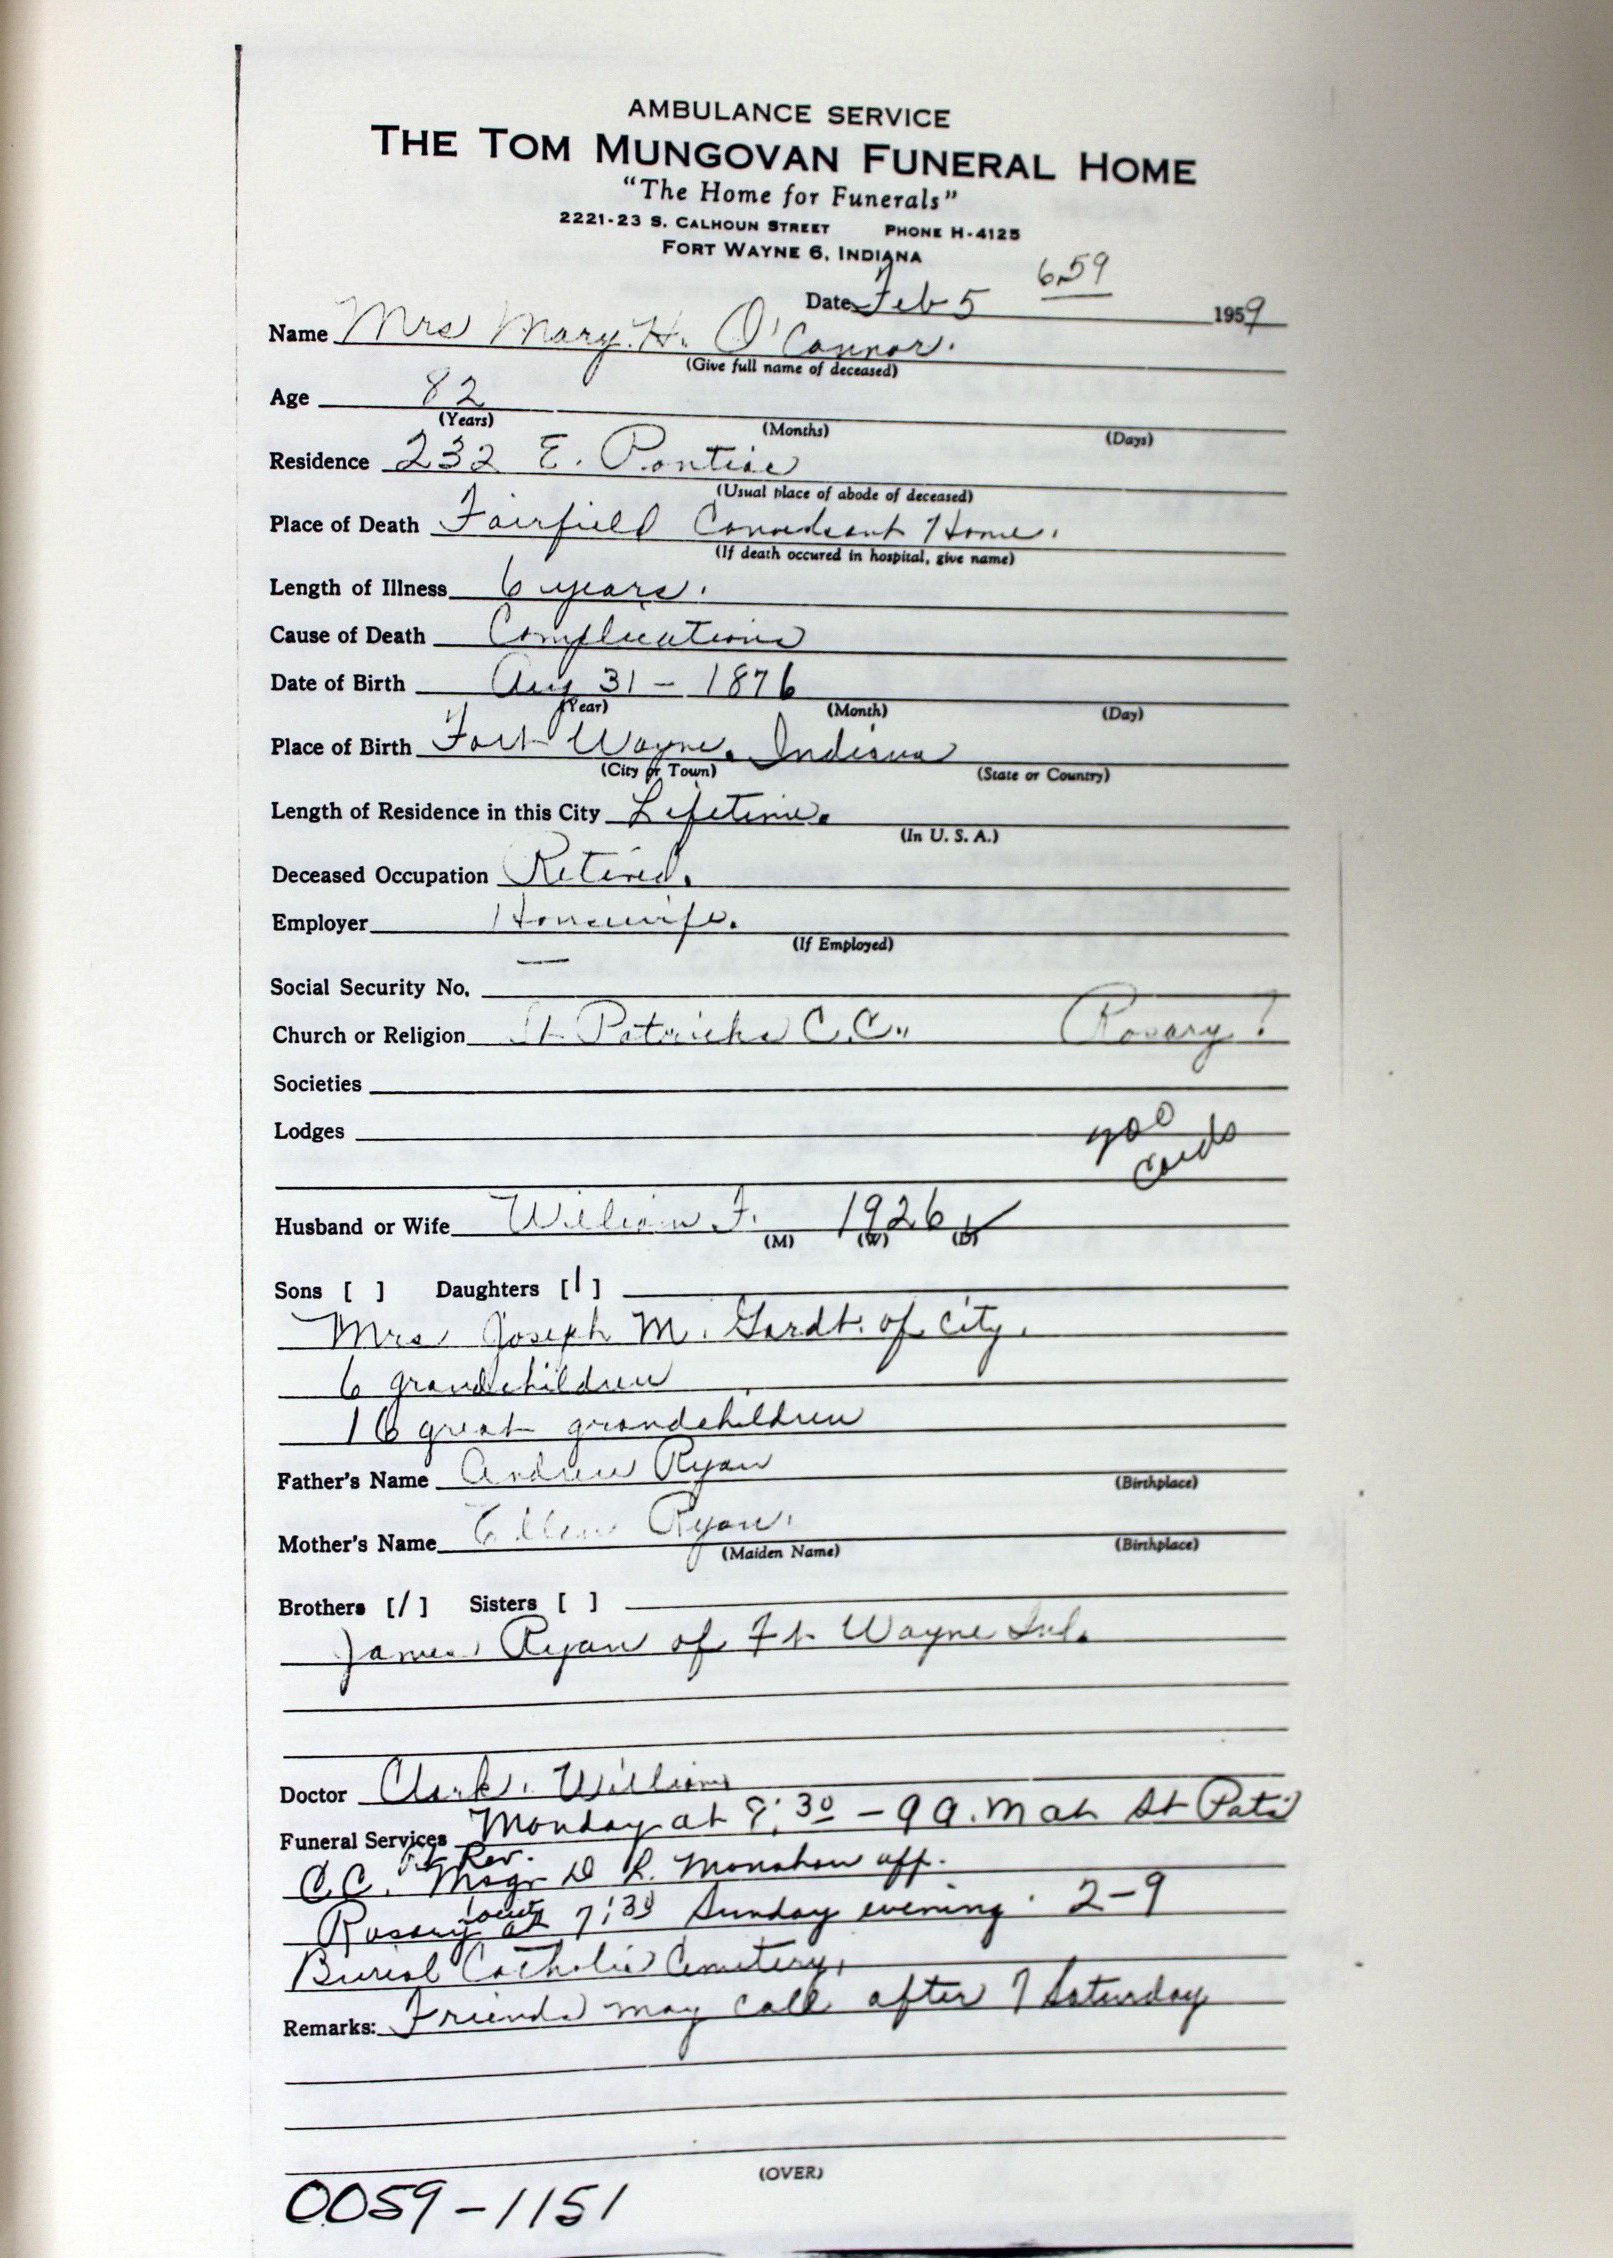 AMBULANCE SERVICE
THE TOM MUNGOVAN FUNERAL HOME
"The Home for Funerals"
2221-23 S. CALHOUN STREET PHONE H-4125
FORT WAYNE 6, INDIANA
6-59
Date Feb 5 1959
Name Mrs Mary H. O'Connor.
(Give full name of deceased)
Age 82
(Years) (Months) (Days)
Residence 232 E. Pontiac
(Usual place of abode of deceased)
Place of Death Fairfield Home.
(If death occured in hospital, give name)
Length of Illness 6 years.
Cause of Death Complications
Date of Birth Aug 31 - 1876
(Year) (Month) (Day)
Place of Birth Fort Wayne. Indiana
(City or Town) (State or Country)
Length of Residence in this City Lifetime.
(In U. S. A.)
Deceased Occupation Retired.
Employer Housewife.
(If Employed)
Social Security No. —
Church or Religion St Patricks C.C. Rosary !
Societies
Lodges
cards
Husband or Wife William F. 1926 ✓
(M) (W) (D)
Sons [ ] Daughters [1]
Mrs Joseph M. of city.
6 grandchildren
16 great grandchildren
Father's Name Andrew Ryan
(Birthplace)
Mother's Name Ellen Ryan.
(Maiden Name) (Birthplace)
Brothers [/] Sisters [ ]
James Ryan of Ft Wayne Ind.
Doctor Clark. William
Funeral Services Monday at 8:30 - 9 a.m at St Pats
Rt Rev.
C.C. Msgr D L. Monahan off.
Rosary at 7:30 Sunday evening. 2-9
Burial Catholic Cemetery.
Remarks: Friends may call after 7 Saturday
(OVER)
0059-1151